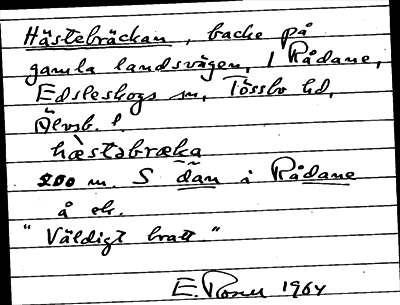 Hästebräckan, backe på
gamla landsvägen, i Rådane,
Edsleskogs sn, Tössbo hd,
Älvsb. l.
hæ̀stəbræka
200 m. S dan i Rådane
å ek.
"Väldigt bratt."
E. Rosen 1964